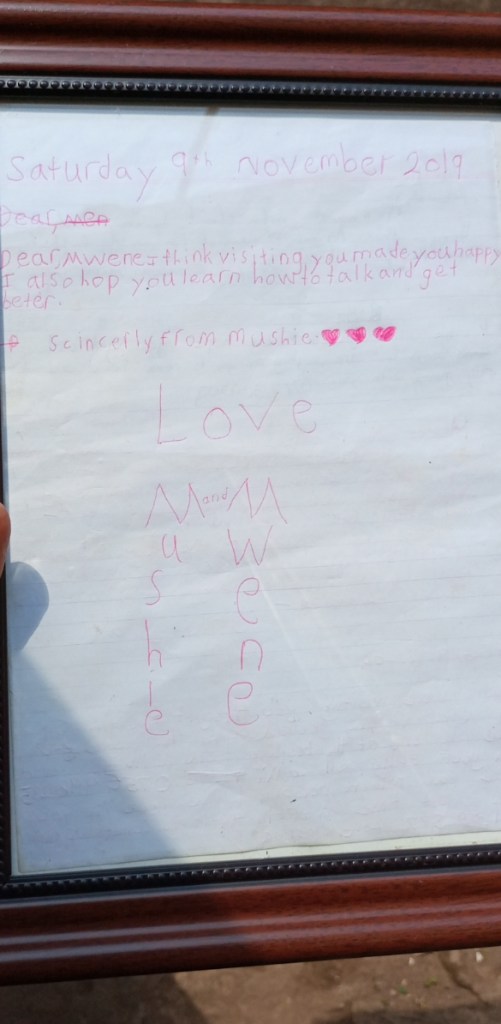 Saturday 9th November 2019
Dear, Men
Dear, Mwene I think visiting you made you happy
I also hop you learn how to talk and get
beter.
Scincerlly from Mushie. ♥ ♥ ♥
Love
M and M
u W
s e
h n
i e
e